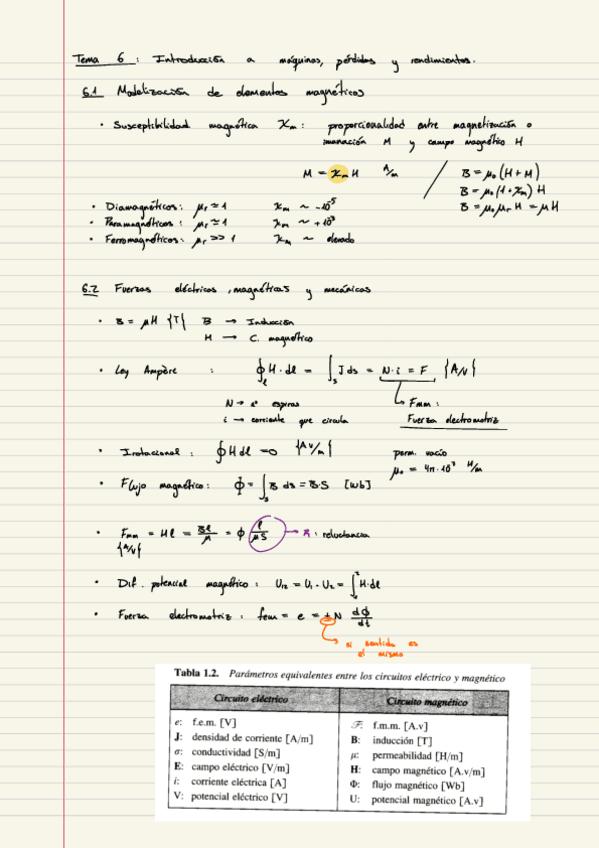 Tema 6 : Introducción a máquinas, pérdidas y rendimientos.
6.1 Modelización de elementos magnéticos
• Susceptibilidad magnética χm : proporcionalidad entre magnetización o
imanación M y campo magnético H
M = χm H A/m
B = μ₀ (H + M)
B = μ₀ (1 + χm) H
B = μ₀ μr H = μH
• Diamagnéticos : μr ≃ 1 χm ~ -10⁻⁵
• Paramagnéticos : μr ≃ 1 χm ~ +10³
• Ferromagnéticos : μr >> 1 χm ~ elevado
6.2 Fuerzas eléctricas, magnéticas y mecánicas
• B = μH {T} B → Inducción
H → C. magnético
• Ley Ampère : ∮ₗ H · dl = ∫ₛ J ds = N·i = F {A/v}
N → nº espiras
i → corriente que circula
Fmm :
Fuerza electromotriz
• Irotacional : ∮ H dl = 0 {Av/m}
perm. vacío
μ₀ = 4π·10³ H/m
• Flujo magnético : Φ = ∫ₛ B ds = B·S [Wb]
• Fmm = Hl = Bl/μ = Φ l/μS → R : reluctancia
{A/v}
• Dif. potencial magnético : U₁₂ = U₁ - U₂ = ∫₁² H·dl
• Fuerza electromotriz : fem = e = ± N dΦ/dt
si sentido es
el mismo
Tabla 1.2. Parámetros equivalentes entre los circuitos eléctrico y magnético
Circuito eléctrico Circuito magnético
e: f.e.m. [V] ℱ: f.m.m. [A.v]
J: densidad de corriente [A/m] B: inducción [T]
σ: conductividad [S/m] μ: permeabilidad [H/m]
E: campo eléctrico [V/m] H: campo magnético [A.v/m]
i: corriente eléctrica [A] Φ: flujo magnético [Wb]
V: potencial eléctrico [V] U: potencial magnético [A.v]